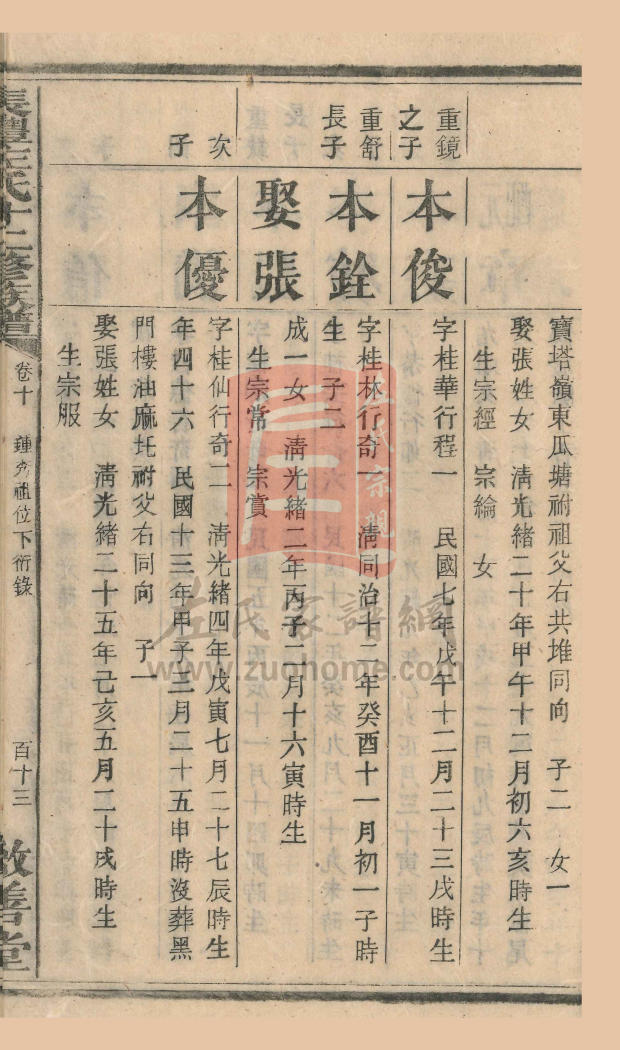 寶塔嶺東瓜塘祔祖父右共堆同向 子二 女一
娶張姓女 清光緒二十年甲午十二月初六亥時生
生宗經 宗綸 一女
重鏡之子
本俊
字桂華行程一 民國七年戊午十二月二十三戌時生
重舒長子
本銓
字桂林行奇一 清同治十二年癸酉十一月初一子時
生 子二
娶張
成一女 清光緒二年丙子二月十六寅時生
生宗常 宗賞
次子
本優
字桂仙行奇二 清光緒四年戊寅七月二十七辰時生
年四十六 民國十三年甲子三月二十五申時沒葬黑
門樓油麻圫祔父右同向 子一
娶張姓女 清光緒二十五年己亥五月二十戌時生
生宗服
左氏十二修族譜
卷十 鍾秀祖位下衍錄 百十三 敦善堂
左氏宗親
左氏家譜網
www.zuohome.com